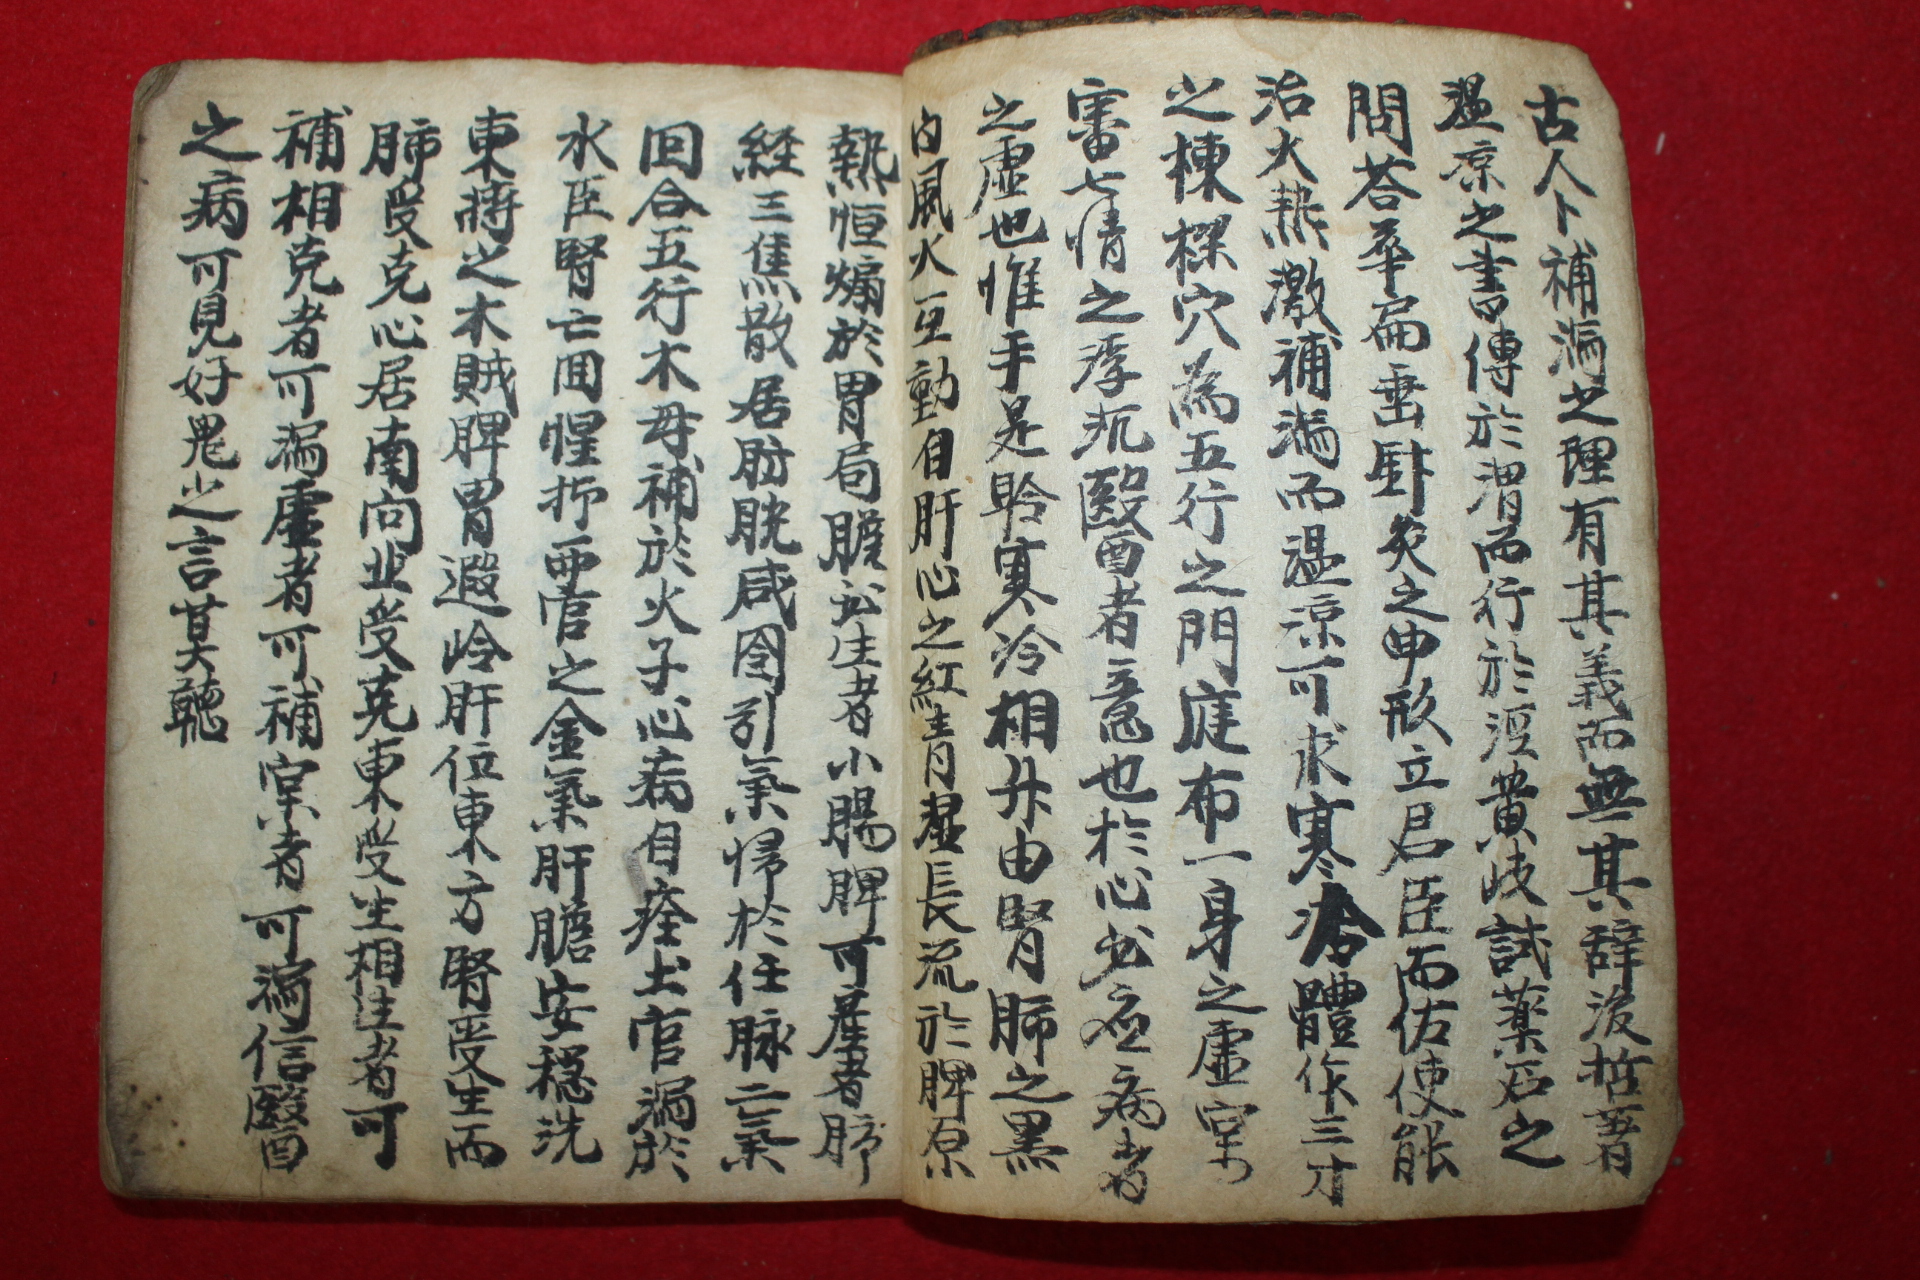 古人卜補瀉之理有其義而無其辭後哲著
溫凉之書傳於渭而行於涇黃歧試藥石之
問答華扁垂針灸之申形立君臣而佐使能
治火熱激補瀉而溫凉可求寒冷體作三才
之棟樑穴為五行之門庭布一身之虛實
審七情之浮沉醫者意也於心必應病者
之虛也惟手是聆寒冷相升由腎肺之黑
白風火互動自肝心之紅青濕長流於脾原
熱恒煽於胃局膽必生者小腸脾可產者肺
經三焦散居肪胱咸囹引氣歸於任脉二氣
回合五行木母補於火子心病自痊土官瀉於
水臣腎亡囬惺抃西官之金氣肝膽安穩洗
東蔣之木賊脾胃遐岭肝位東方腎受生而
肺受克心居南向北受克東受生相生者可
補相克者可瀉虛者可補實者可瀉信醫
之病可見好鬼少之言莫聽